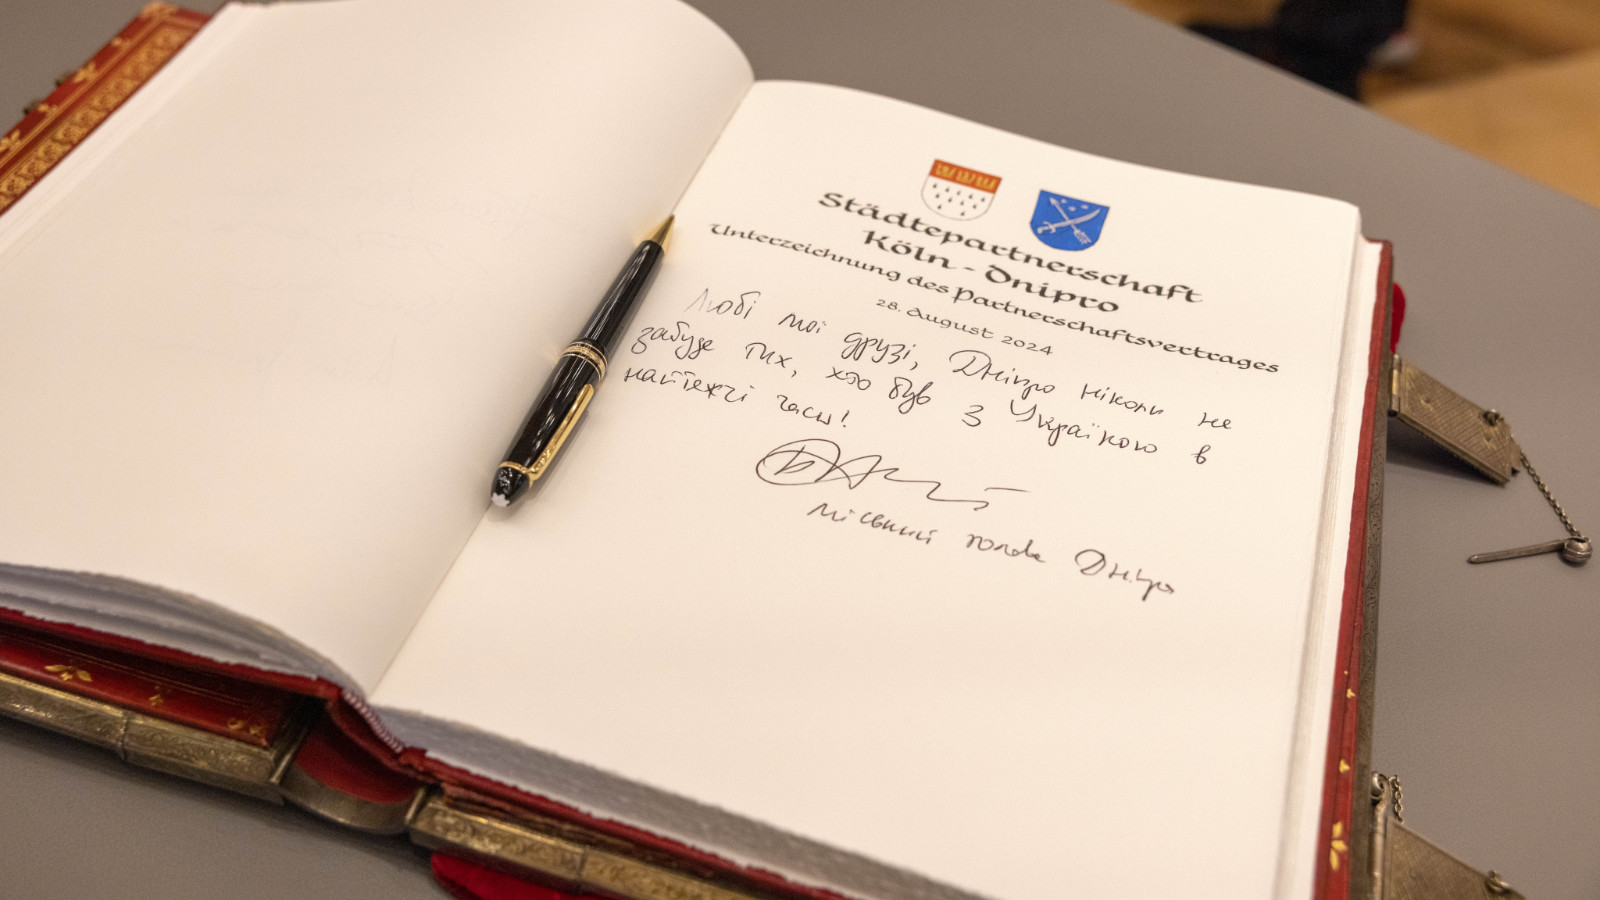 Städtepartnerschaft
Köln - Dnipro
Unterzeichnung des Partnerschaftsvertrages
28. August 2024
Любі мої друзі, Дніпро ніколи не
забуде тих, хто був з Україною в
найтяжчі часи!
міський голова Дніпра